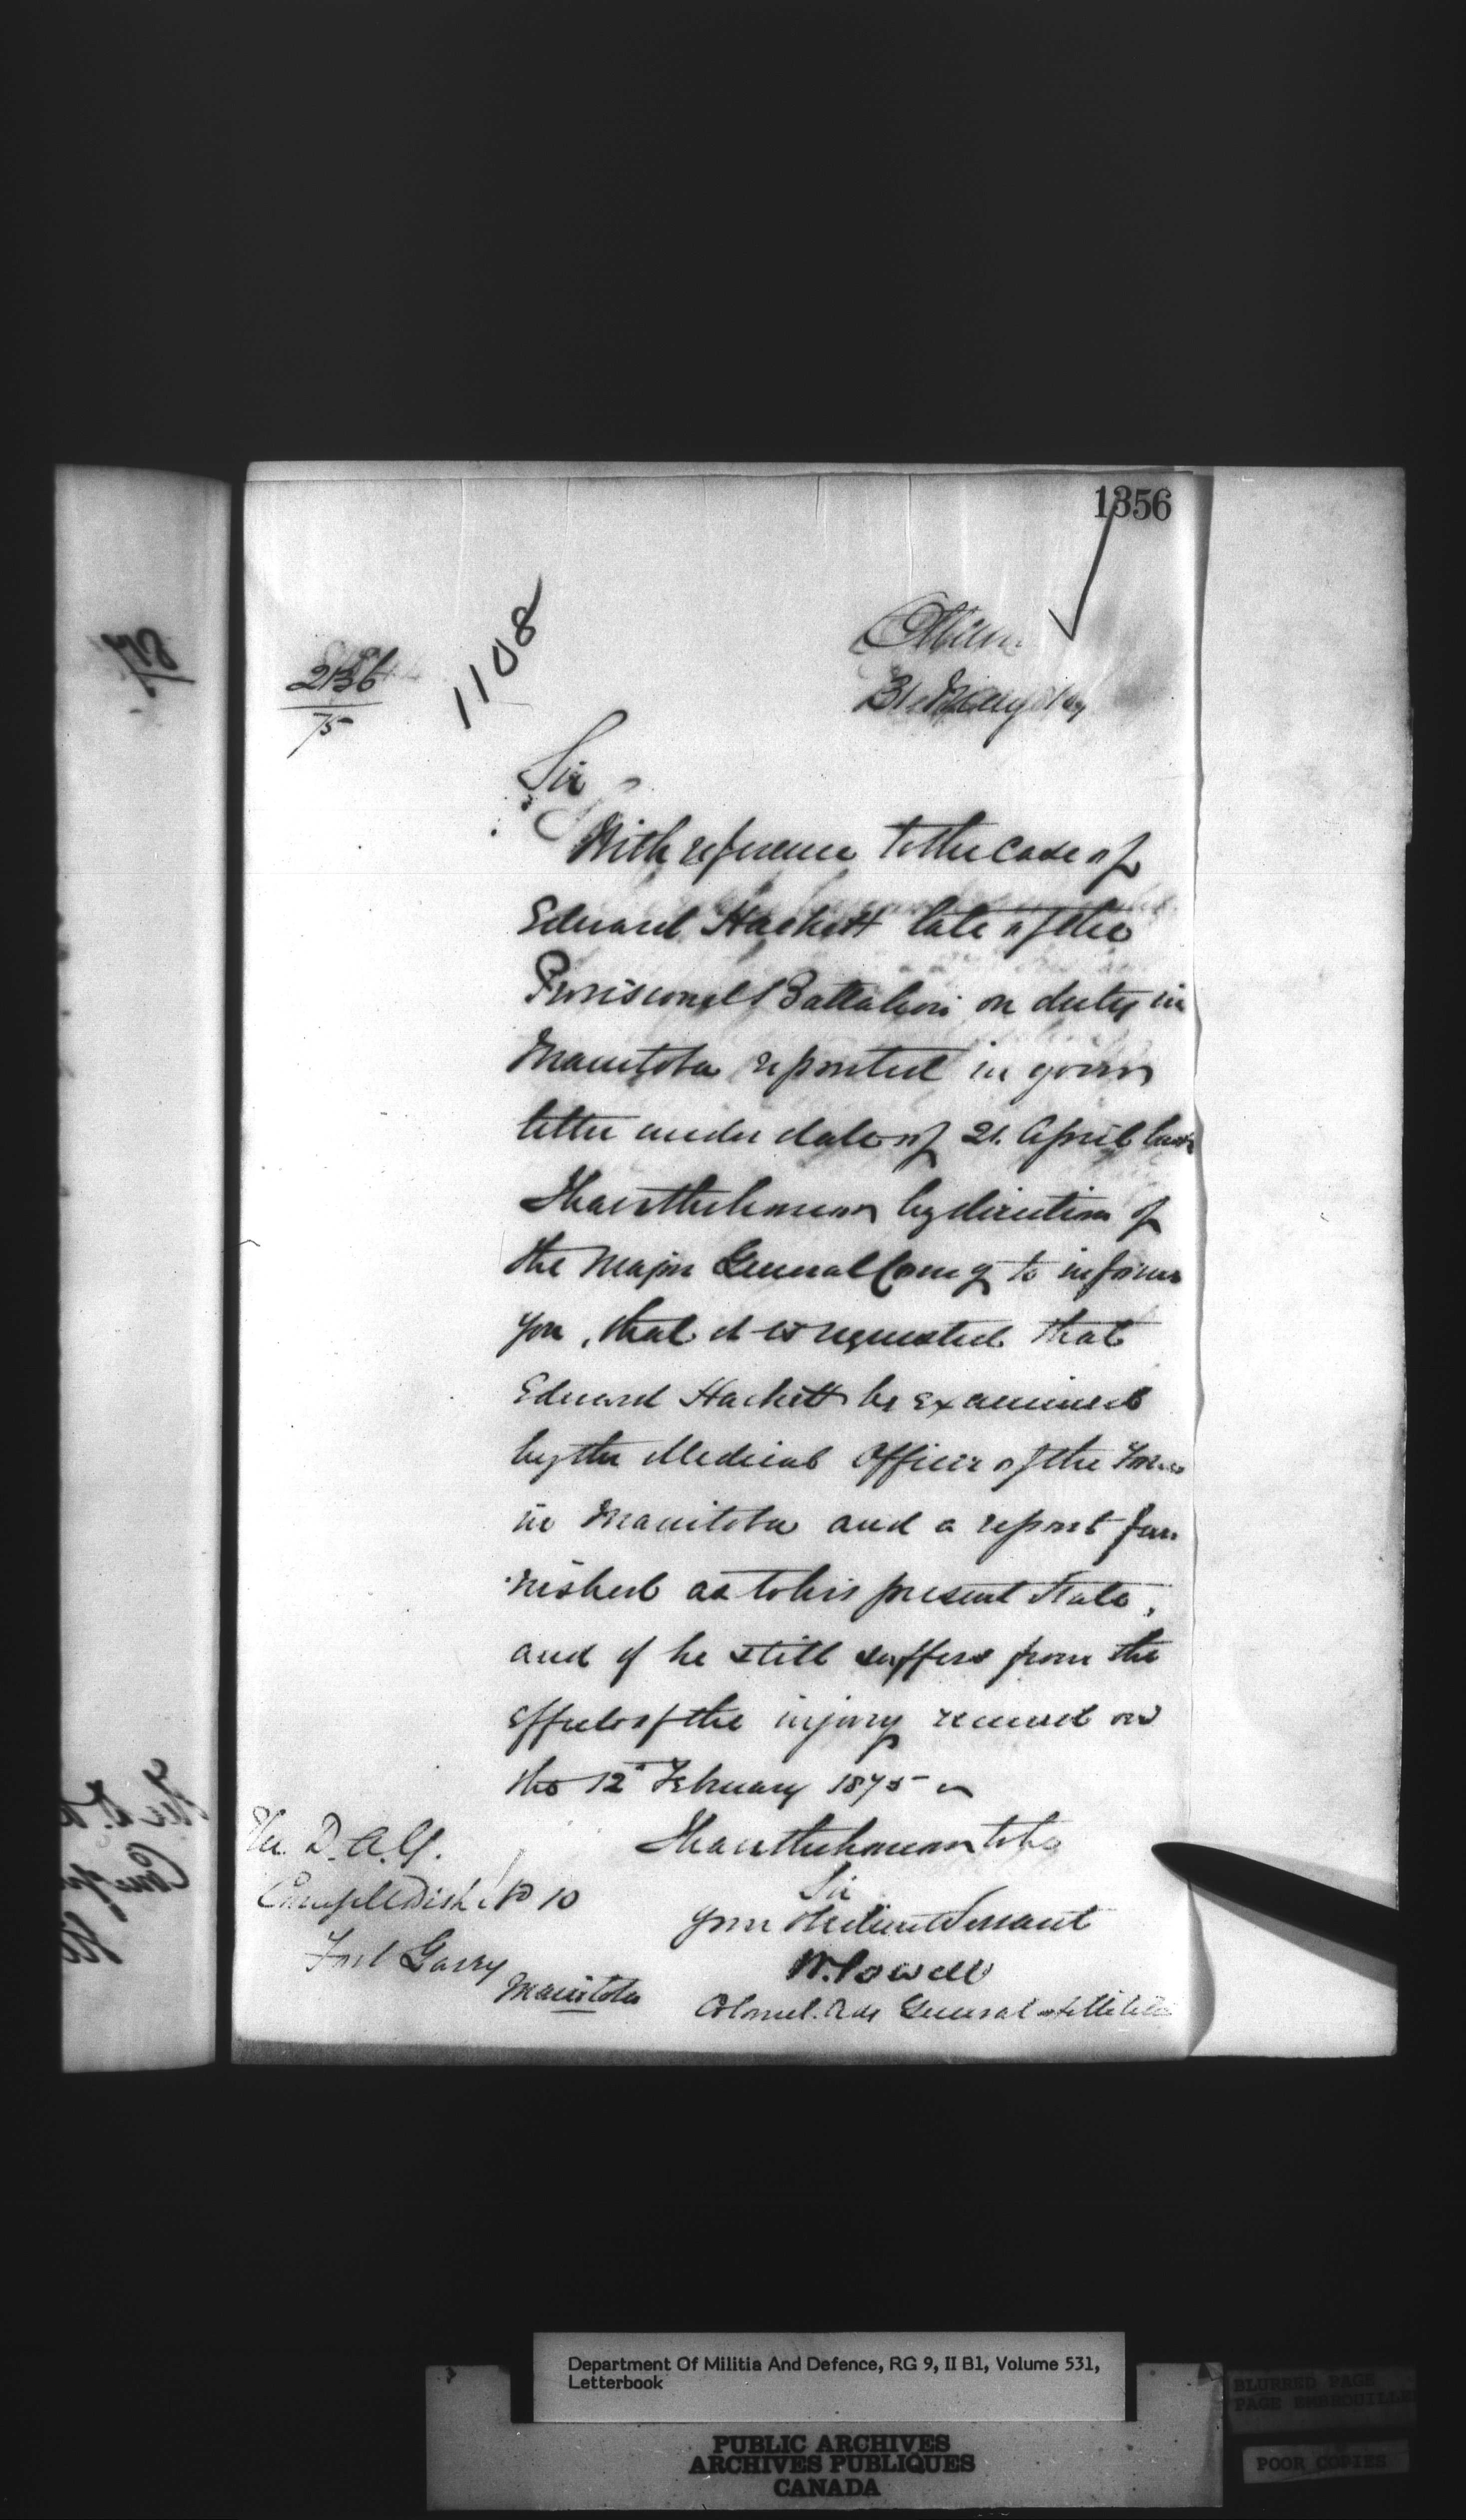 1356
1108
75
Ottawa
31 May
Sir
With reference to the case of
Edward Hackett late of the
Provisional Battalion on duty in
Manitoba reported in your
letter under date of 21. April last
I have the honour by direction of
the Major General Comg to inform
you, that it is requested that
Edward Hackett be examined
by the Medical Officer of the Force
in Manitoba and a report fur
nished as to his present state,
and if he still suffers from the
effects of the injury received on
the 12th February 1875
I have the honour to be
Sir
your Obedient Servant
W. Powell
Colonel. Adj General of Militia
The D.A.G.
Comg Mil Dist No 10
Fort Garry
Manitoba
Department Of Militia And Defence, RG 9, II B1, Volume 531,
Letterbook
PUBLIC ARCHIVES
ARCHIVES PUBLIQUES
CANADA
BLURRED PAGE
PAGE EMBROUILLE
POOR COPIES